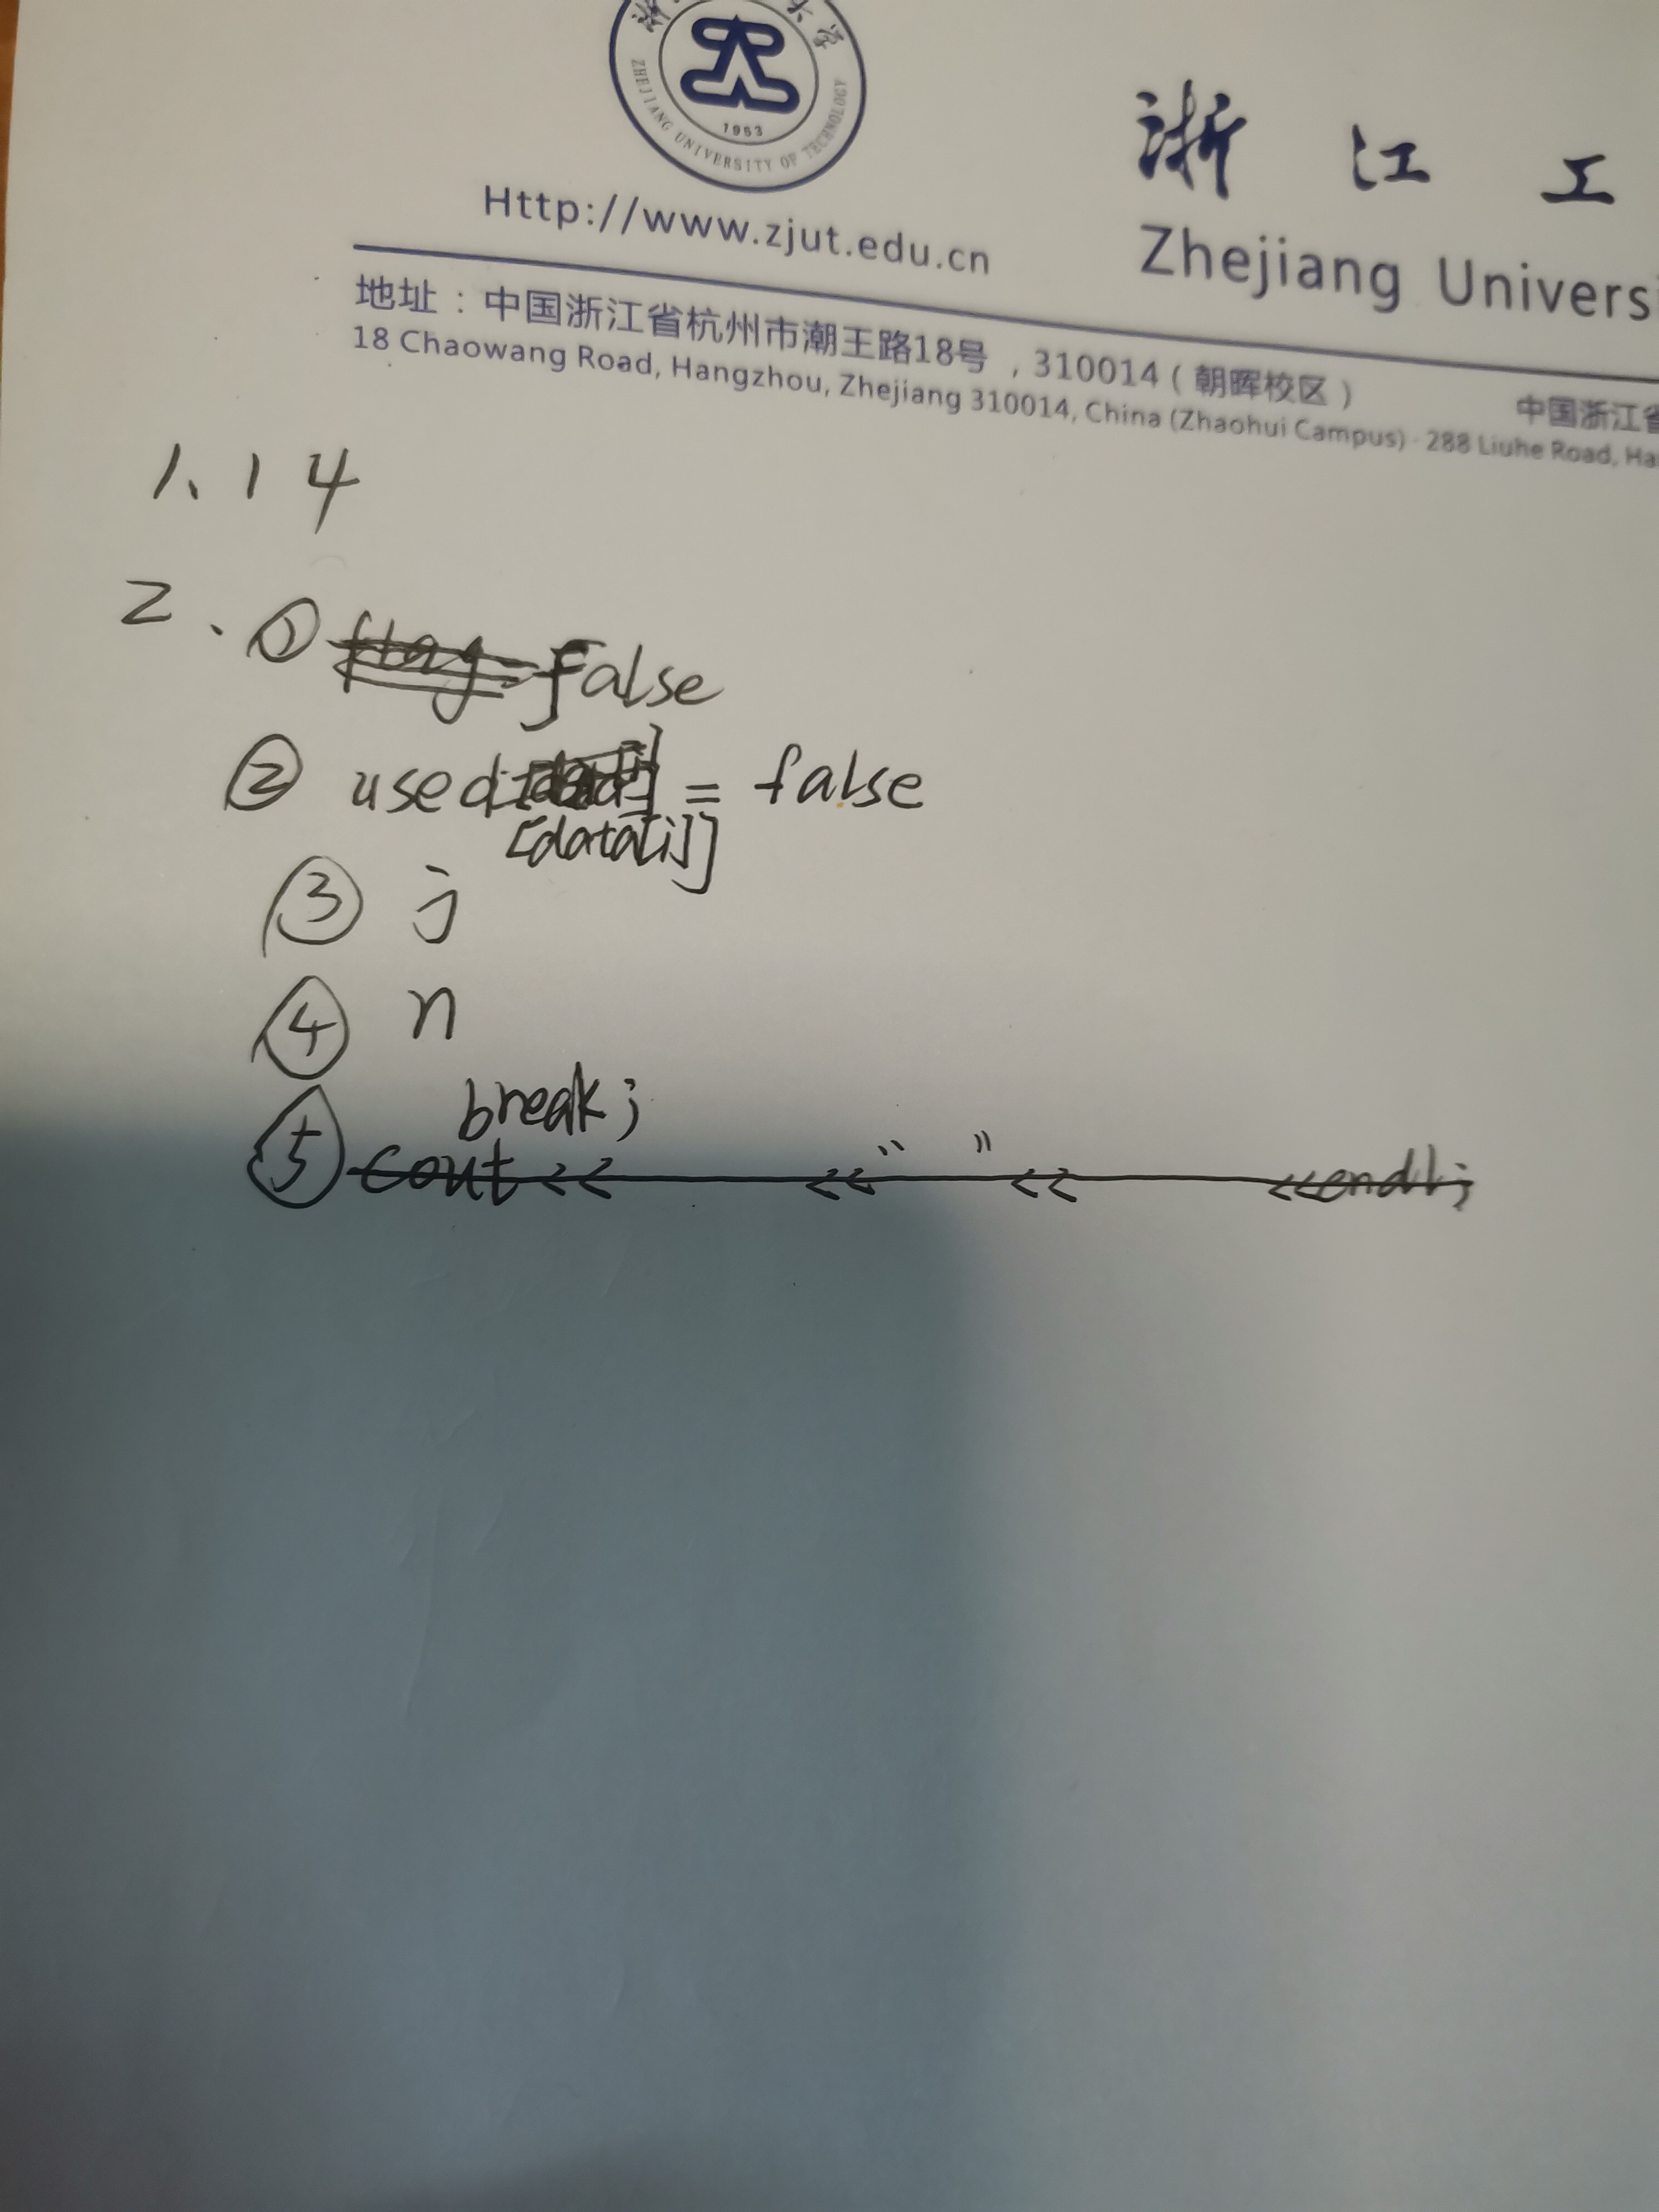 浙 大学
ZHEJIANG UNIVERSITY OF TECHNOLOGY
1953
Http://www.zjut.edu.cn
浙 江 工
Zhejiang Universi
地址：中国浙江省杭州市潮王路18号，310014（朝晖校区）
中国浙江省
18 Chaowang Road, Hangzhou, Zhejiang 310014, China (Zhaohui Campus) · 288 Liuhe Road, Ha
1、14
2、① flag false
② used = false
[data[i]]
③ j
④ n
break;
⑤ cout << << " " << <<endl;